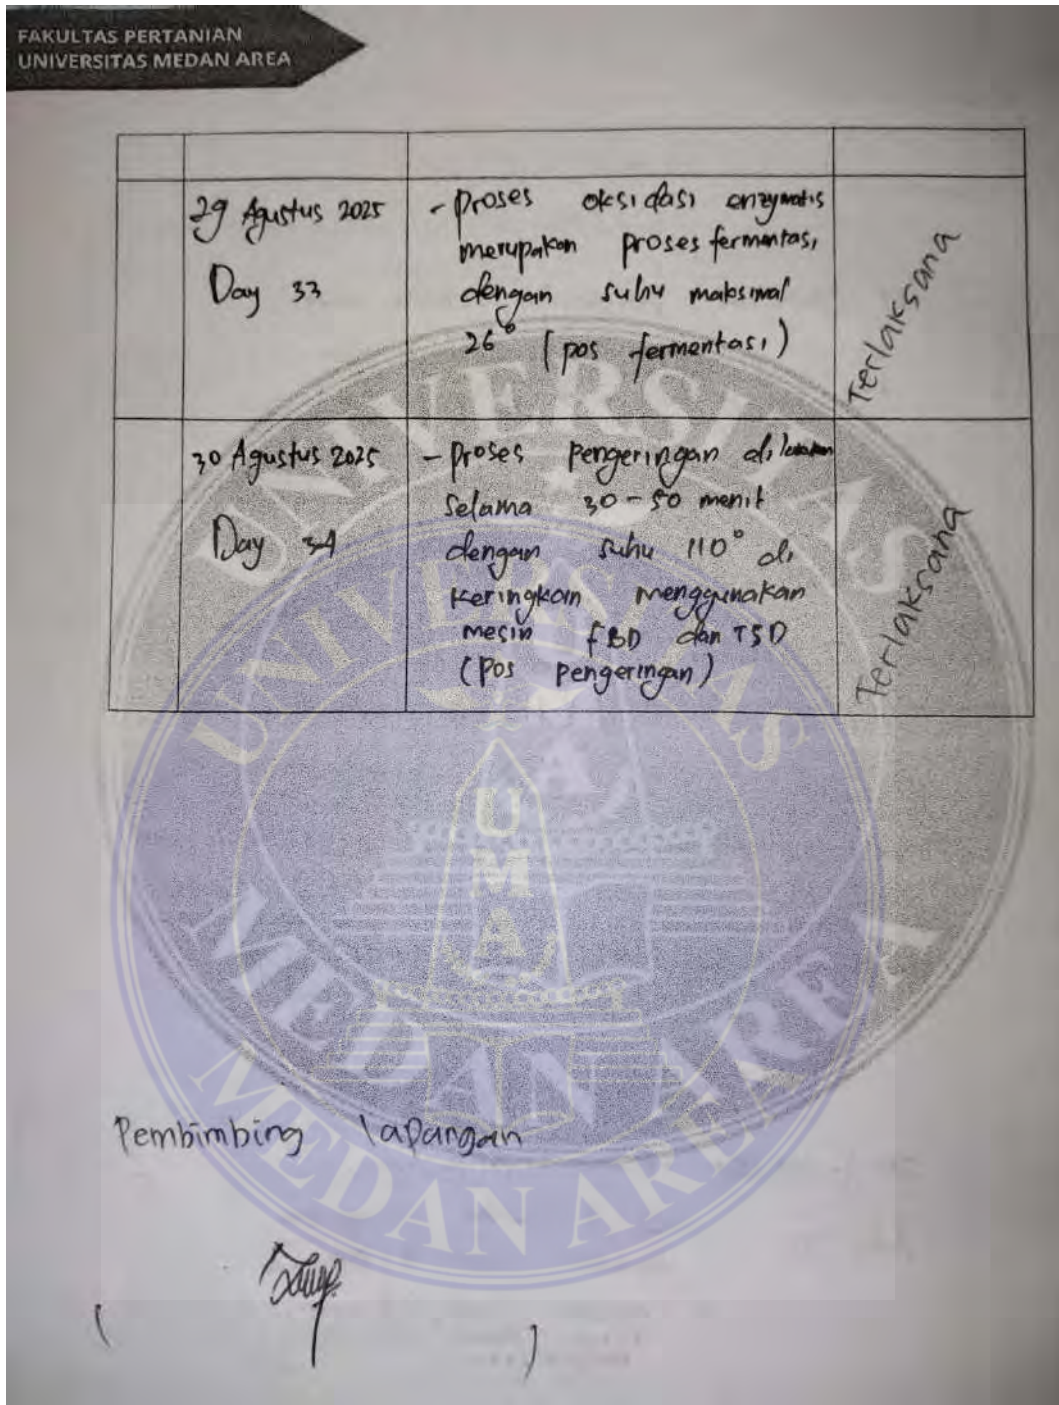 FAKULTAS PERTANIAN
UNIVERSITAS MEDAN AREA
29 Agustus 2025
Day 33
- Proses oksidasi enzymatis
merupakan proses fermentasi
dengan suhu maksimal
26° (pos fermentasi)
Terlaksana
30 Agustus 2025
Day 34
- Proses pengeringan di
selama 30-50 menit
dengan suhu 110° di
keringkan menggunakan
mesin FBD dan TSD
(Pos pengeringan)
Terlaksana
UNIVERSITAS
MEDAN AREA
UNIVERSITAS
MEDAN AREA
UMA
Pembimbing lapangan
( )